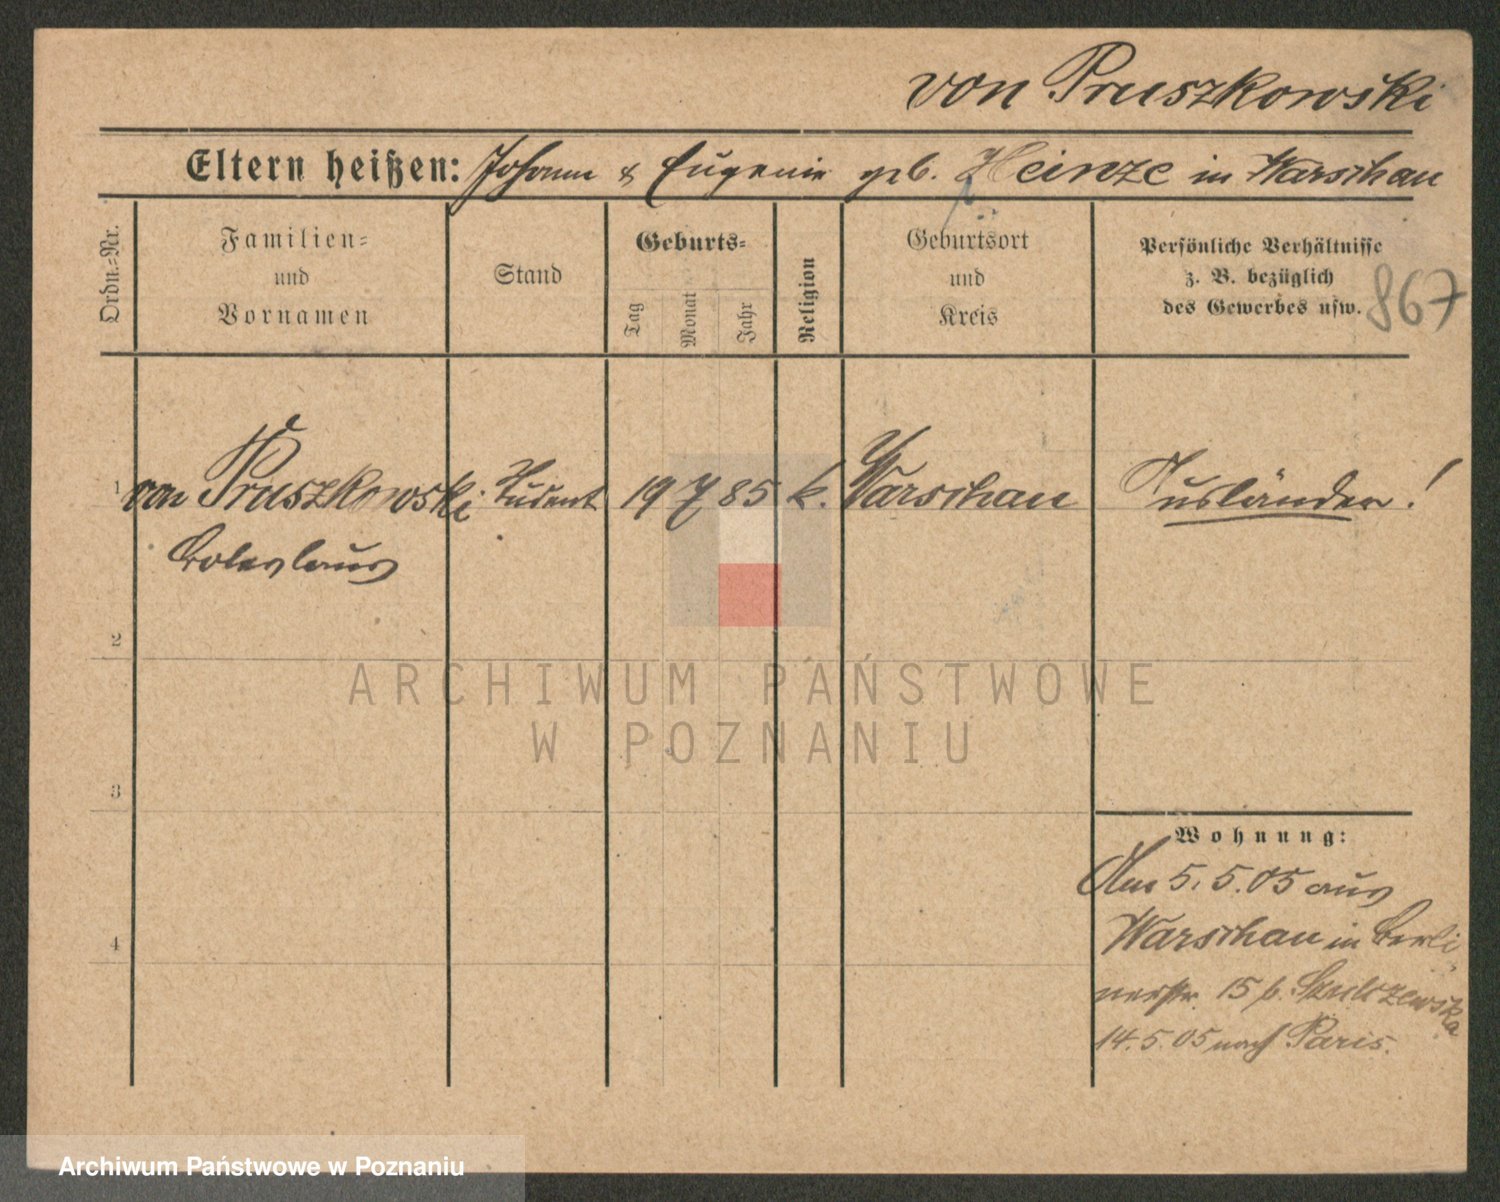 von Pruszkowski
Eltern heißen: Johann & Eugenie geb. Heinze in Warschau
Ordn.=Nr.
Familien=
und
Vornamen
Stand
Geburts=
Tag
Monat
Jahr
Religion
Geburtsort
und
Kreis
Persönliche Verhältnisse
z. B. bezüglich
des Gewerbes usw.
867
1 von Pruszkowski Student 19 7 85 k. Warschau Ausländer!
Boleslaus
2
3
4
Wohnung:
Am 5.5.05 aus
Warschau in Berli
nerstr. 15 b. Szulczewska
14.5.05 nach Paris.
ARCHIWUM PAŃSTWOWE
W POZNANIU
Archiwum Państwowe w Poznaniu